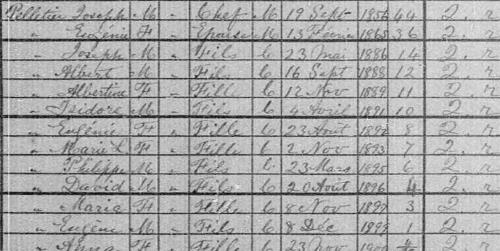 Pelletier Joseph M " Chef M 19 Sept 1856 44 2. r
" Eugénie F " Epouse M 13 Février 1865 36 2. r
" Joseph M " Fils C 23 Mai 1886 14 2. r
" Albert M " Fils C 16 Sept 1888 12 2. r
" Albertine F " Fille C 12 Nov 1889 11 2. r
" Isidore M " Fils C 4 Avril 1891 10 2. r
" Eugénie F " Fille C 23 Aout 1892 8 2. r
" Marie L F " Fille C 2 Nov 1893 7 2. r
" Philippe M " Fils C 23 Mars 1895 6 2. r
" David M " Fils C 20 Aout 1896 4 2. r
" Maria F " Fille C 8 Nov 1897 3 2. r
" Eugene M " Fils C 8 Dec 1899 1 2. r
" Anna F " Fille C 23 Nov 1900 2. r